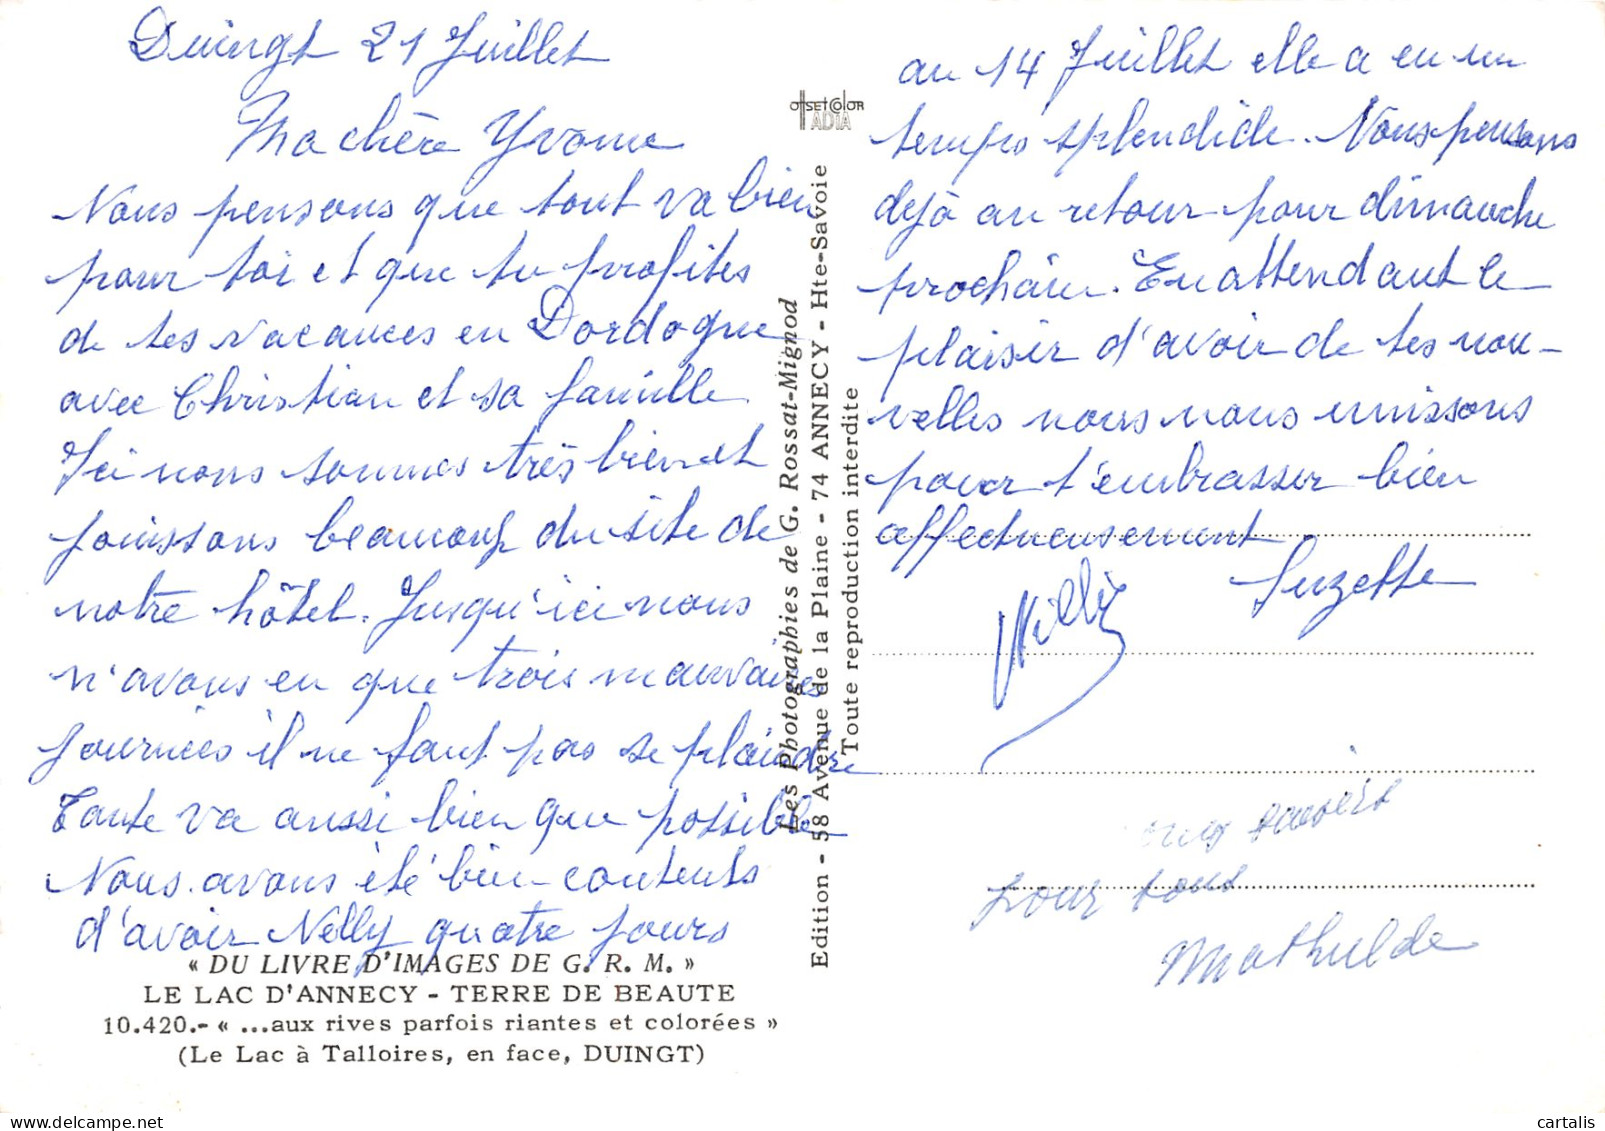 Duingt 21 Juillet
Ma chère Yvonne
Nous pensons que tout va bien
pour toi et que tu profites
de tes vacances en Dordogne
avec Christian et sa famille
Ici nous sommes très bien et
jouissons beaucoup du site de
notre hôtel. Jusqu'ici nous
n'avons eu que trois mauvaises
journées il ne faut pas se plaindre
Tante va aussi bien que possible
Nous avons été bien contents
d'avoir Nelly quatre jours
« DU LIVRE D'IMAGES DE G. R. M. »
LE LAC D'ANNECY - TERRE DE BEAUTE
10.420.- « ...aux rives parfois riantes et colorées »
(Le Lac à Talloires, en face, DUINGT)
OFFSET COlOR
ADIA
Les Photographies de G. Rossat-Mignod
Edition - 58 Avenue de la Plaine - 74 ANNECY - Hte-Savoie
Toute reproduction interdite
au 14 Juillet elle a eu un
temps splendide. Nous pensons
déjà au retour pour dimanche
prochain. En attendant le
plaisir d'avoir de tes nou-
velles nous nous unissons
pour t'embrasser bien
affectueusement
Suzette
Willy
pour tous
Mathilde
11420.jpg
cartalis